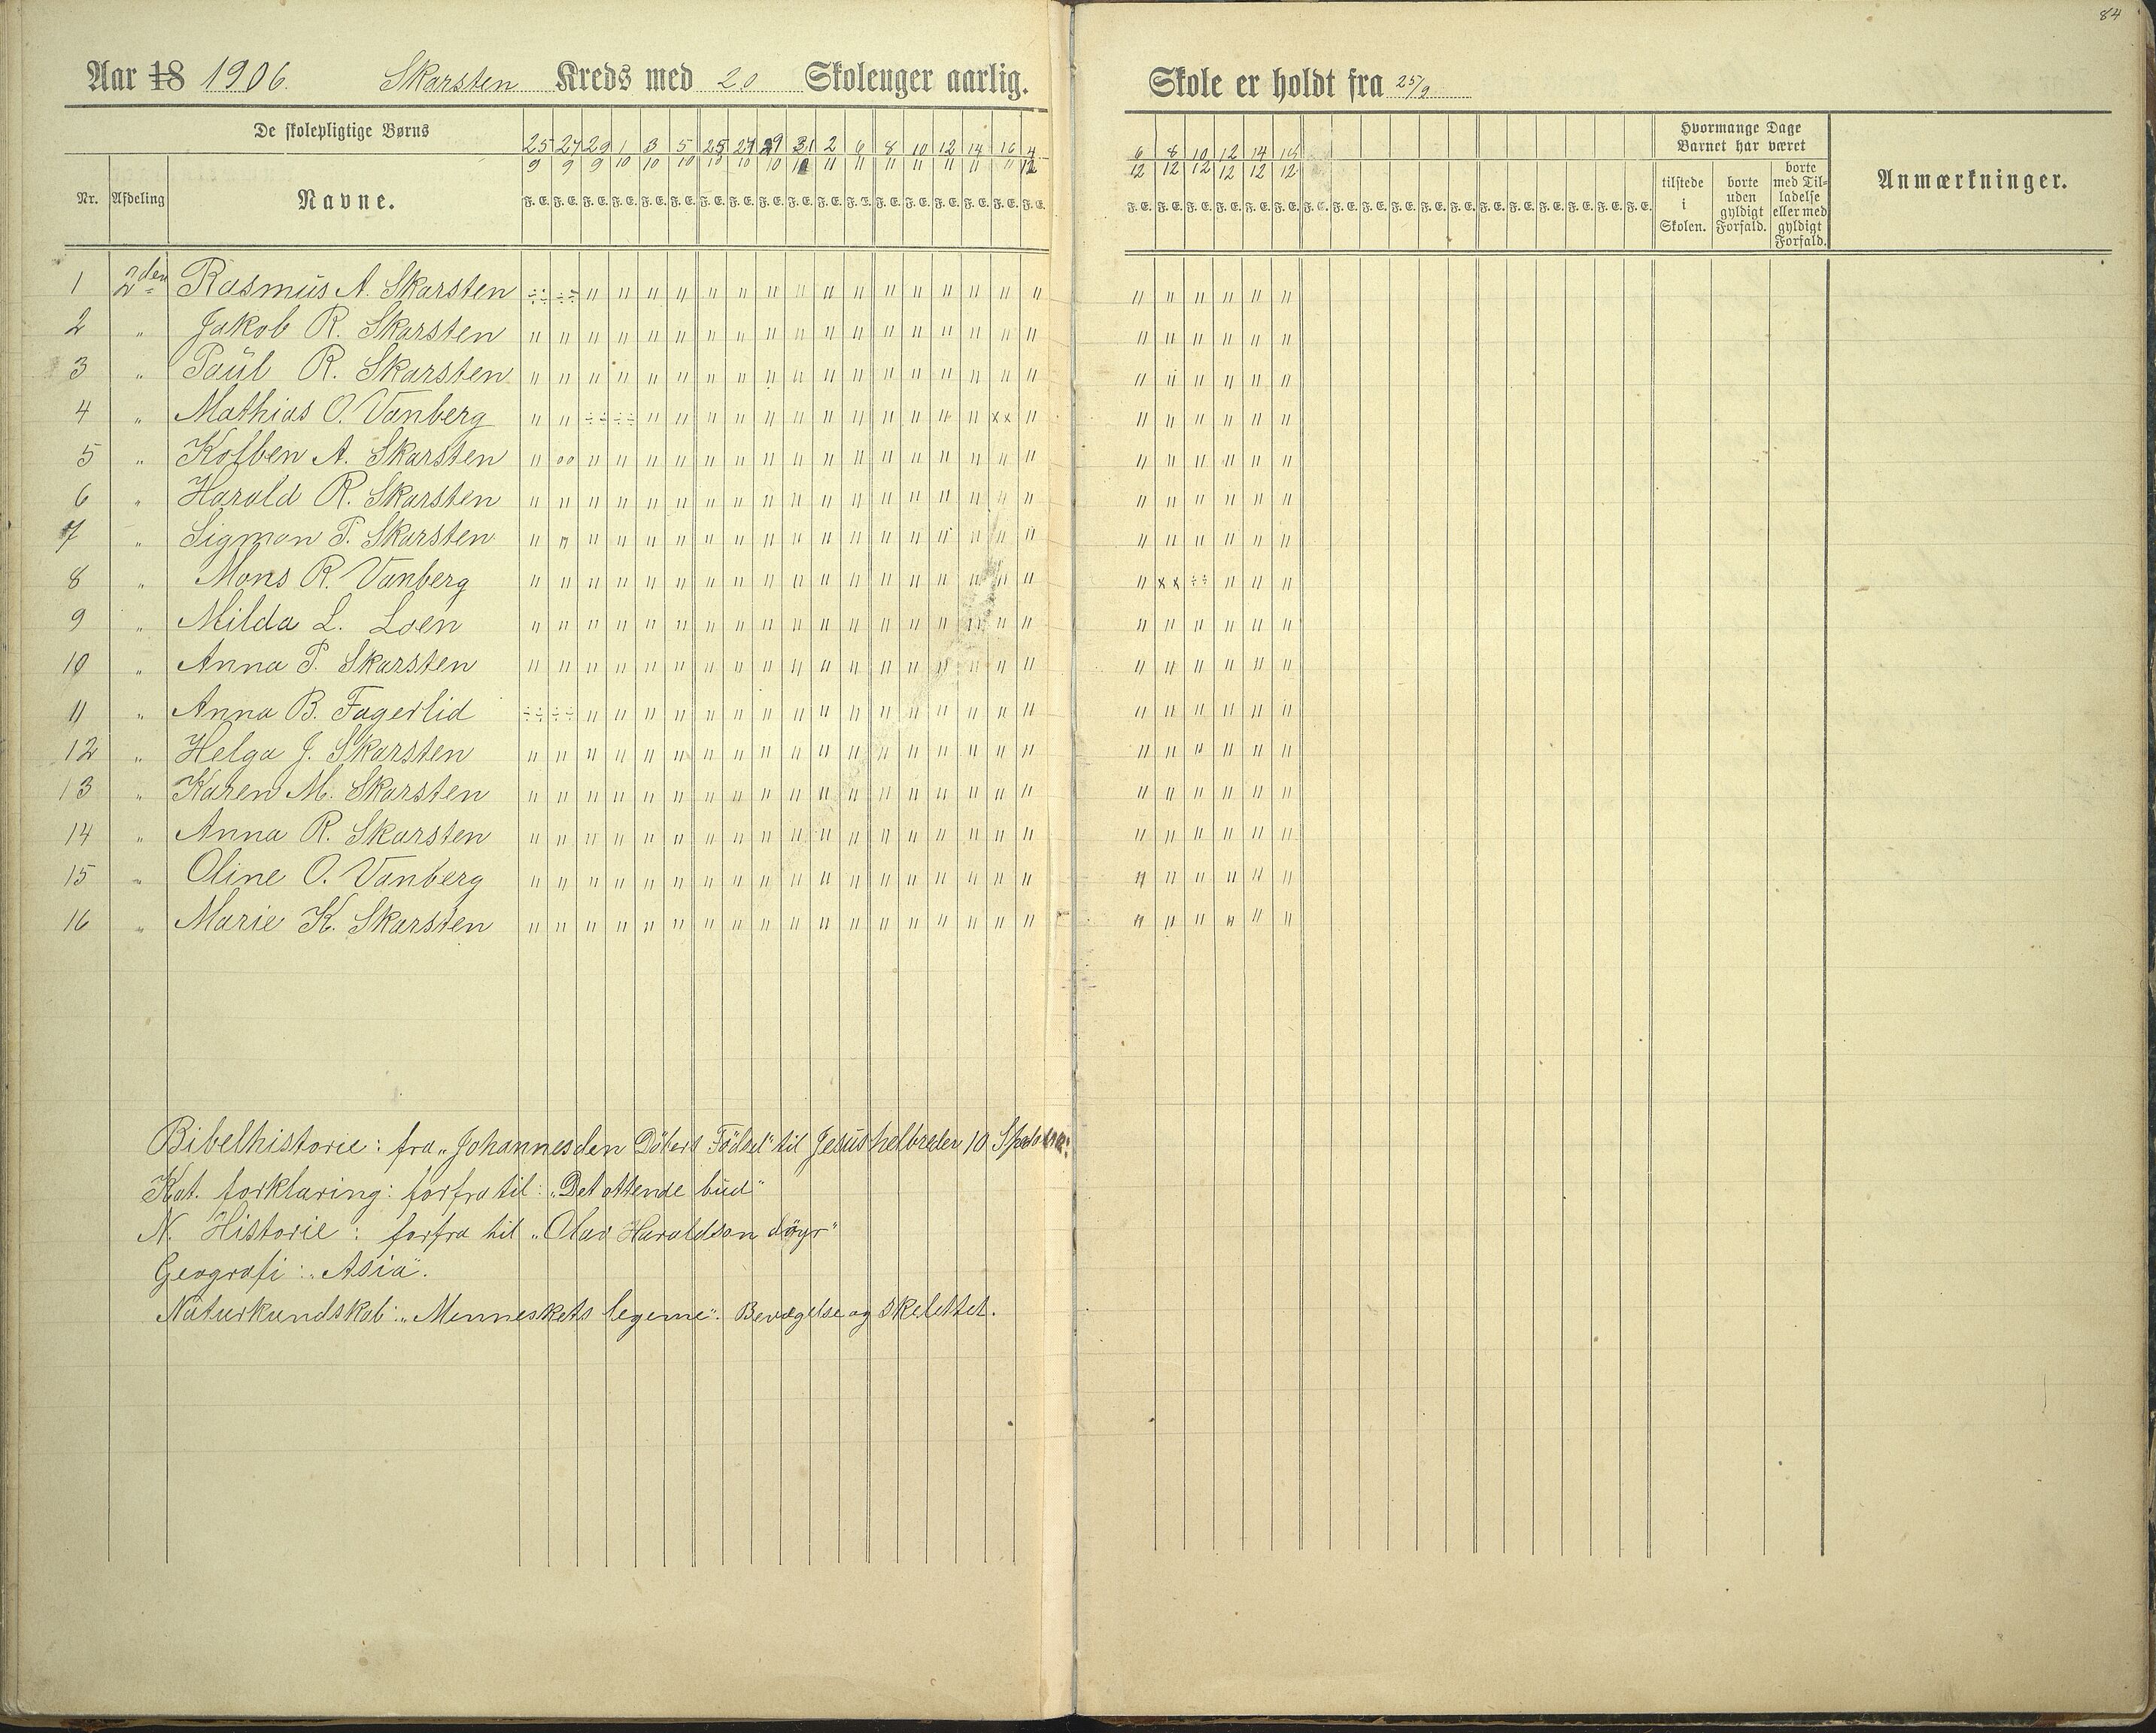 84
Aar 18 1906. Skarsten Kreds med 20 Skoleuger aarlig. Skole er holdt fra 25/9
De skolepligtige Børns
25 27 29 1 3 5 25 27 29 31 2 6 8 10 12 14 16 4 6 8 10 12 14 18
9 9 9 10 10 10 10 10 10 10 11 11 11 11 11 11 11 12 12 12 12 12 12 12
Hvormange Dage Barnet har været
Nr. Afdeling Navne.
F. E. F. E. F. E. F. E. F. E. F. E. F. E. F. E. F. E. F. E. F. E. F. E. F. E. F. E. F. E. F. E. F. E. F. E.
F. E. F. E. F. E. F. E. F. E. F. E. F. E. F. E. F. E. F. E. F. E. F. E. F. E. F. E. F. E. F. E. F. E. F. E.
tilstede i Skolen.
borte uden gyldigt Forfald.
borte med Tilladelse eller med gyldigt Forfald.
Anmærkninger.
1 2den Rasmus A. Skarsten ÷÷ ÷÷ " " " " " " " " " " " " " " " " " " " " " "
2 " Jakob R. Skarsten " " " " " " " " " " " " " " " " " " " " " " " "
3 " Paul R. Skarsten " " " " " " " " " " " " " " " " " " " " " " " "
4 " Mathias O. Vanberg " " ÷÷ ÷÷ " " " " " " " " " " " " xx " " " " " " "
5 " Kolben A. Skarsten " oo " " " " " " " " " " " " " " " " " " " " " "
6 " Harald R. Skarsten " " " " " " " " " " " " " " " " " " " " " " " "
7 " Sigmon P. Skarsten " " " " " " " " " " " " " " " " " " " " " " " "
8 " Mons R. Vanberg " " " " " " " " " " " " " " " " " " " xx ÷÷ " " "
9 " Milda L. Loen " " " " " " " " " " " " " " " " " " " " " " " "
10 " Anna P. Skarsten " " " " " " " " " " " " " " " " " " " " " " " "
11 " Anna B. Fagerlid ÷÷ ÷÷ " " " " " " " " " " " " " " " " " " " " " "
12 " Helga J. Skarsten " " " " " " " " " " " " " " " " " " " " " " " "
13 " Karen M. Skarsten " " " " " " " " " " " " " " " " " " " " " " " "
14 " Anna R. Skarsten " " " " " " " " " " " " " " " " " " " " " " " "
15 " Oline O. Vanberg " " " " " " " " " " " " " " " " " " " " " " " "
16 " Marie K. Skarsten " " " " " " " " " " " " " " " " " " " " " " " "
Bibelhistorie: fra „Johannes den Döbers Födsel" til Jesus helbreder 10 Spedalske:
Kat. forklaring: forfra til: „Det ottende bud"
N. Historie: forfra til „Olav Haraldson döyr"
Geografi: „Asia".
Naturkundskab: „Menneskets legeme". Bevægelse og skelettet.